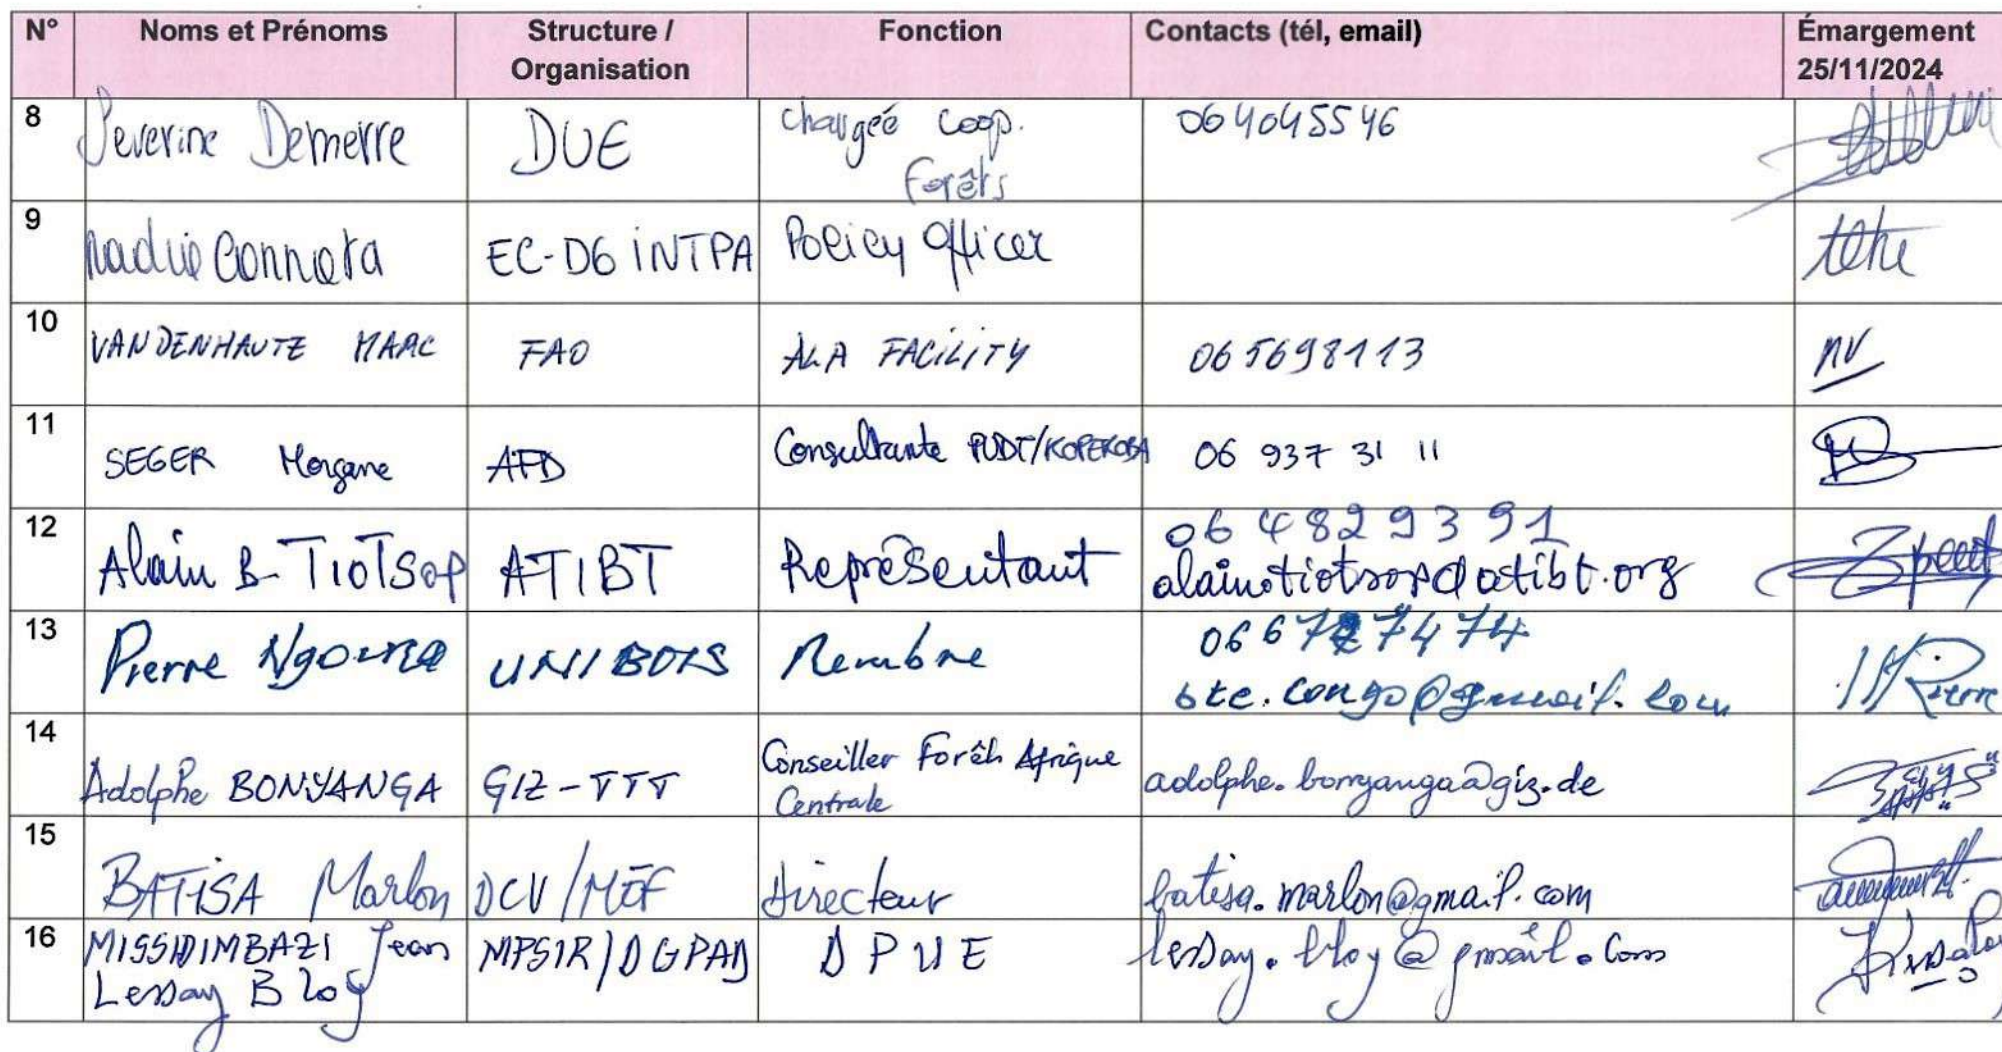 N° Noms et Prénoms Structure / Organisation Fonction Contacts (tél, email) Émargement 25/11/2024
8 Severine Demerre DUE chargée Coop. Forêts 064045546
9 Nadia Connata EC-DG INTPA Policy Officer
10 VANDENHAUTE MARC FAO ALA FACILITY 065698113 MV
11 SEGER Morgane AFD Consultante PUDT/KOPEKOBA 06 937 31 11
12 Alain B-TIOTSop ATIBT Représentant 06 4829391
alain.tiotsop@atibt.org
13 Pierre Ngouma UNIBOIS Membre
bte.congo@gmail.com Pierre
14 Adolphe BONYANGA GIZ-TTT Conseiller Forêt Afrique Centrale adolphe.bonyanga@giz.de
15 BATISA Marlon DCV/MEF Directeur batisa.marlon@gmail.com
16 MISSIDIMBAZI Jean MPSIR/DGPAD DPUE lessay.bloy@gmail.com
Lessay Bloy